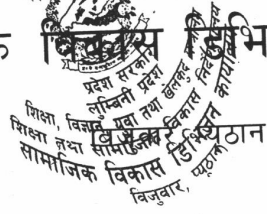 विकास डिभि
प्रदेश सरकार
लुम्बिनी प्रदेश
शिक्षा, विज्ञान, युवा तथा खेलकुद
शिक्षा तथा सामाजिक विकास निर्देशनालय
सामाजिक विकास डिभिजन कार्यालय
विजुवार, प्यूठान
विजुवार प्यूठान